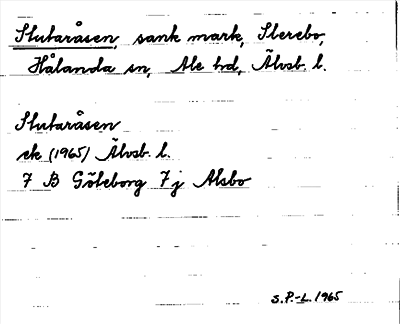 Slutaråsen, sank mark, Slerebo,
Hålanda sn, Ale hd, Älvsb. l.
Slutaråsen
ek (1965) Älvsb. l.
7 B Göteborg 7 j Alsbo
S.P.-L. 1965